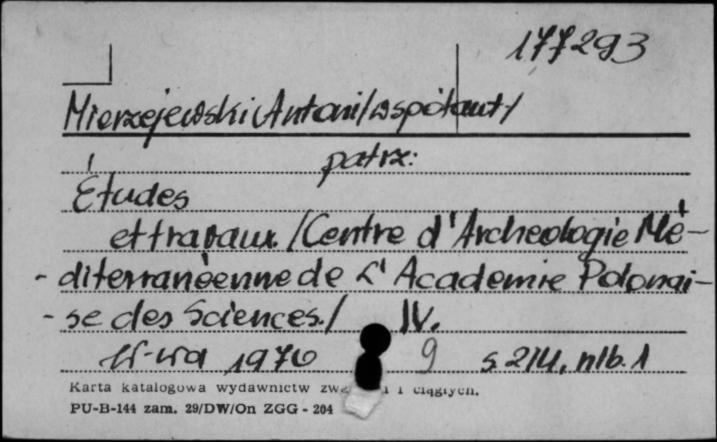 177293
Mierzejewski Antoni/współaut/
patrz:
Études
et travaux. /Centre d'Archeologie Mé-
-diterranéenne de L'Academie Polonai-
-se des Sciences./ IV.
W-wa 1970 9 s 214, nlb. 1
Karta katalogowa wydawnictw i ciągłych.
PU-B-144 zam. 29/DW/On ZGG - 204